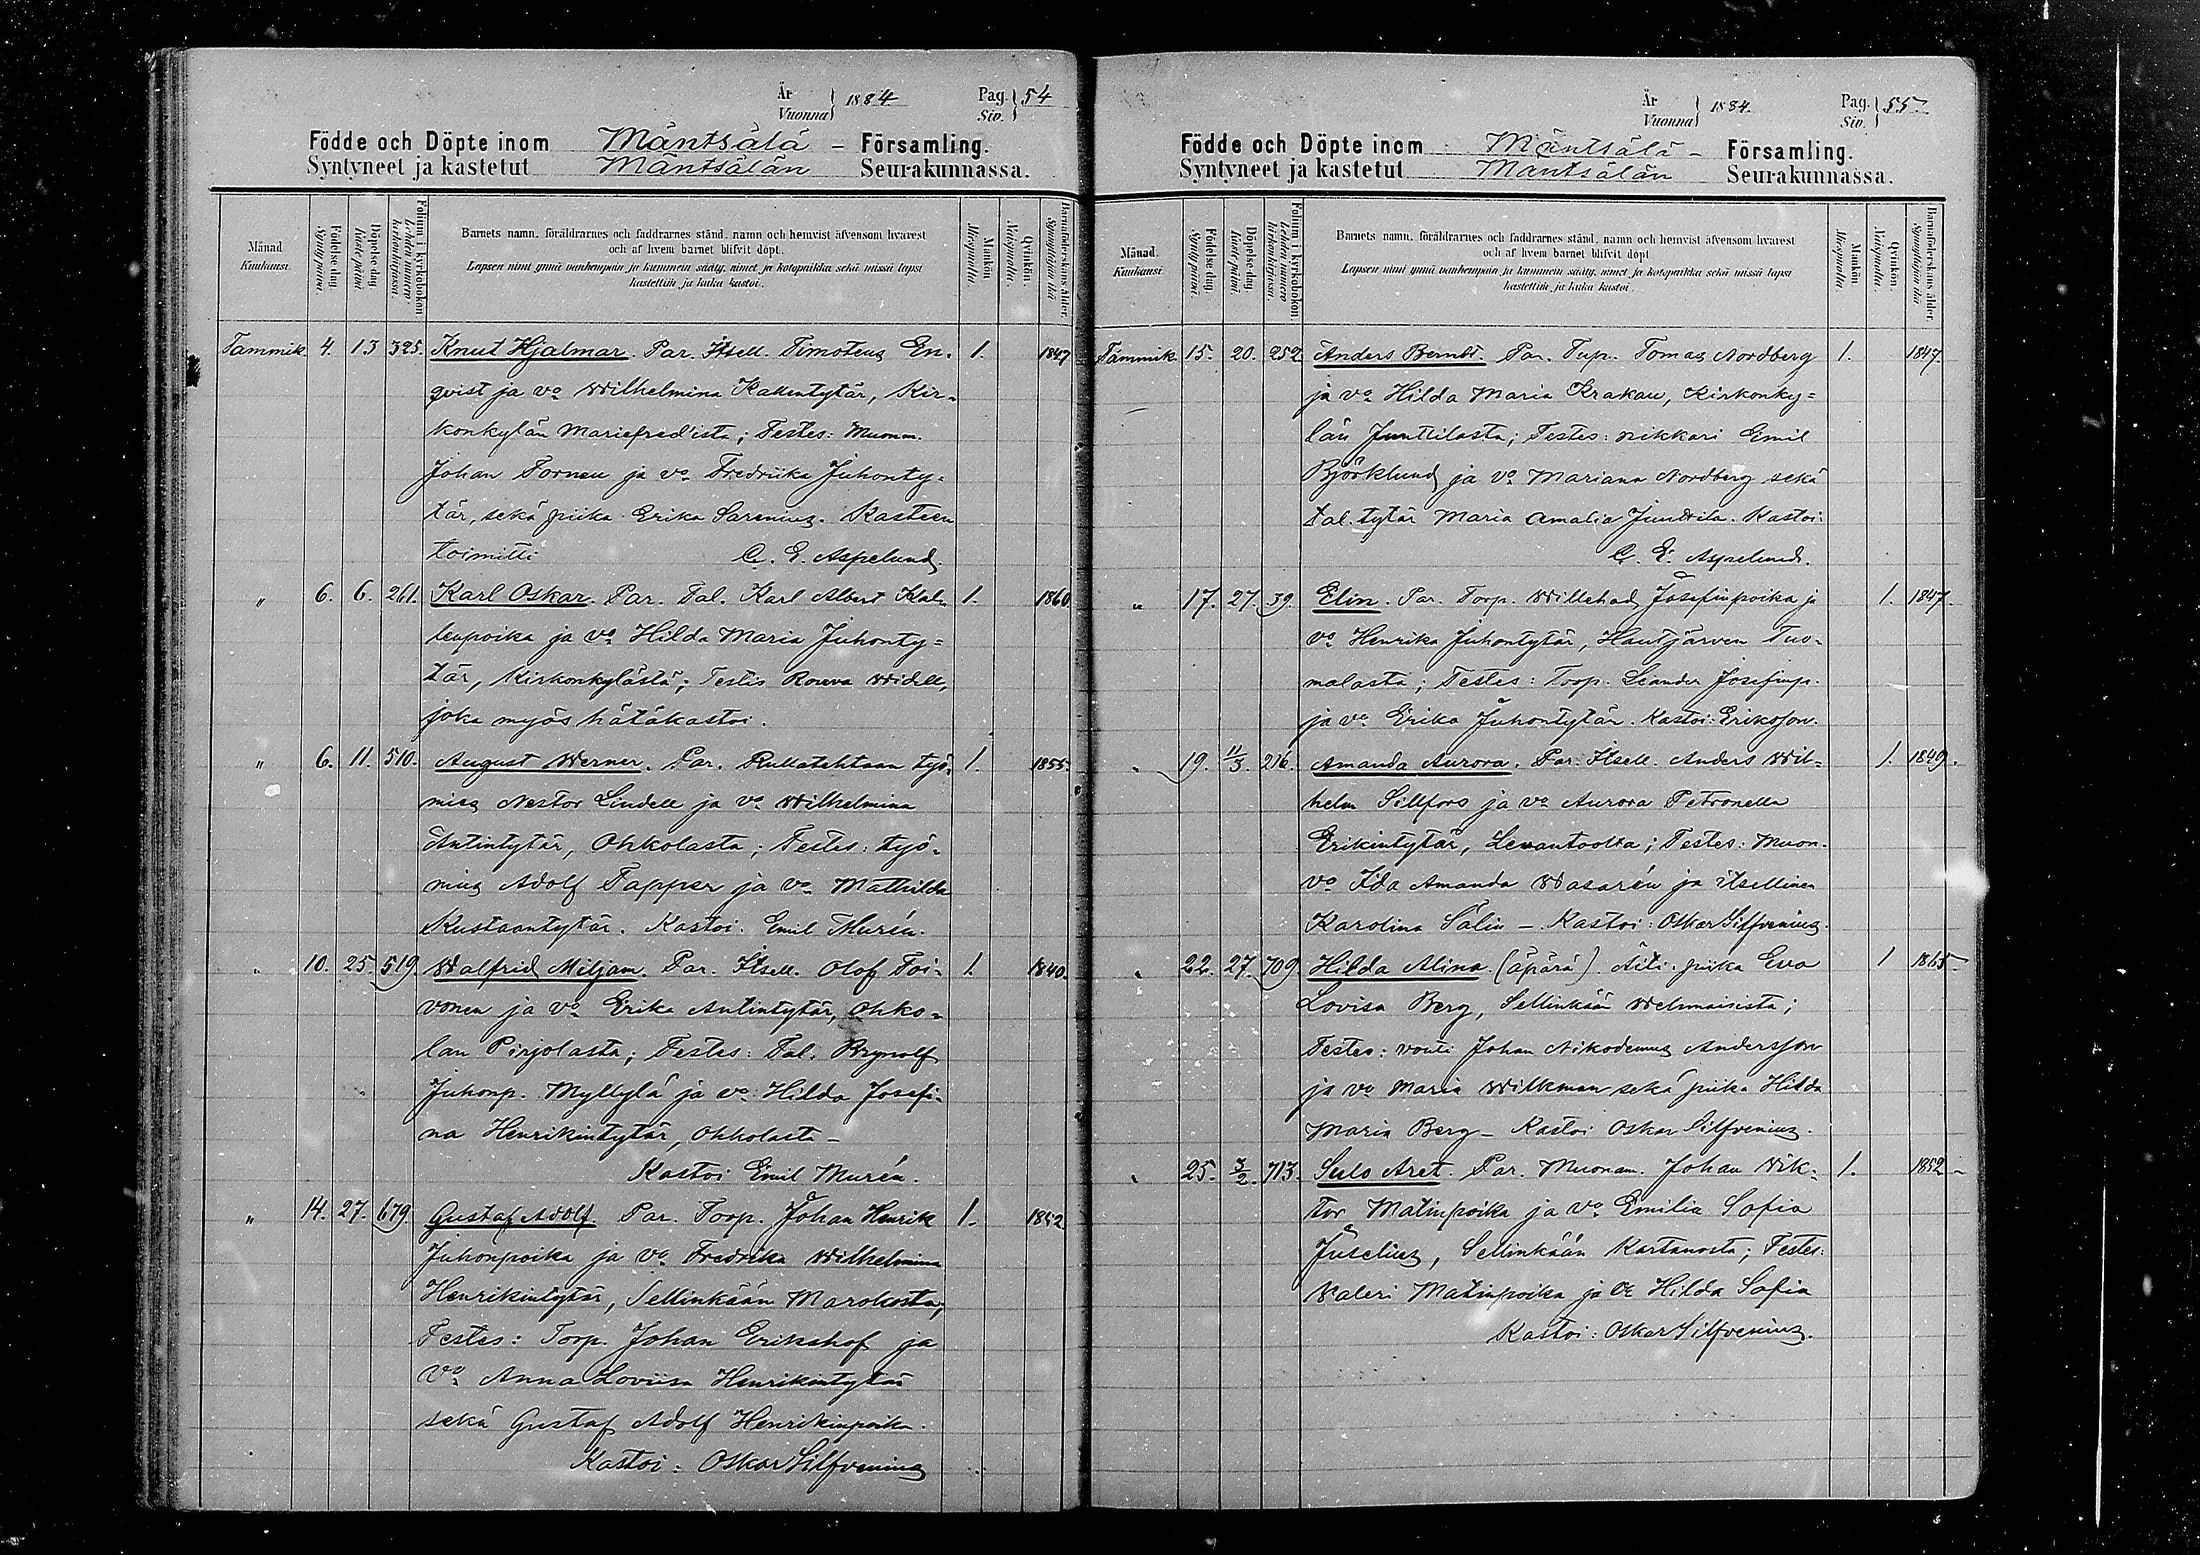 År
Vuonna } 1884. Pag. Siv. } 54
Födde och Döpte inom Mäntsälä – Församling.
Syntyneet ja kastetut Mäntsälän Seurakunnassa.
Månad. Kuukausi. Födelse dag. Synty päivä. Döpelse dag. Kaste päivä. Folium i kyrkobokon. Lehden numero kirkonkirjassa.
Barnets namn, föräldrarnes och faddrarnes stånd, namn och hemvist äfvensom hvarest
och af hvem barnet blifvit döpt.
Lapsen nimi ynnä vanhempain ja kummein sääty, nimet ja kotopaikka sekä missä lapsi
kastettiin ja kuka kastoi.
Mankön. Miespuolia. Qvinkön. Naispuolia. Barnaföderskans ålder. Synnyttäjän ikä.
Tammik. 4. 13 325. Knut Hjalmar. Par. Itsell. Timoteus En- 1. 1847
qvist ja vo Wilhelmina Kallentytär, Kir-
konkylän Mariefred'ista; Testes: Muonm.
Johan Forneu ja vo Fredriika Juhonty-
tär, sekä piika Erika Sarenius. Kasteen
toimitti C. E. Aspelund.
" 6. 6. 261. Karl Oskar. Par. Tal. Karl Albert Kal- 1. 1860.
lenpoika ja vo Hilda Maria Juhonty-
tär, Kirkonkylästä; Testis Rouva Widell,
joka myös hätäkastoi.
" 6. 11. 510. August Werner. Par. Rullatehtaan työ- 1. 1855.
mies Nestor Lindell ja vo Wilhelmina
Antintytär, Ohkolasta; Testes: työ-
mies Adolf Tapper ja vo Mathilda
Kustaantytär. Kastoi: Emil Murén.
" 10. 25. 519. Walfrid Miljam. Par. Itsell. Olof Toi- 1. 1840.
vonen ja vo Erika Antintytär, Ohko-
lan Pirjolasta; Testes: Tal. Brynolf
Juhonp. Myllylä ja vo Hilda Josefi-
na Henrikintytär, Ohkolasta –
Kastoi Emil Murén.
" 14. 27. 679. Gustaf Adolf. Par. Torp. Johan Henrik 1. 1852
Juhonpoika ja vo Fredrika Wilhelmina
Henrikintytär, Sellinkään Marokosta;
Testes: Torp. Johan Erikshof ja
Vo Anna Loviisa Henrikintytär
sekä Gustaf Adolf Henrikinpoika.
Kastoi: Oskar Silfvenius
År
Vuonna } 1884. Pag. Siv. } 55.
Födde och Döpte inom Mäntsälä – Församling.
Syntyneet ja kastetut Mäntsälän Seurakunnassa.
Månad. Kuukausi. Födelse dag. Synty päivä. Döpelse dag. Kaste päivä. Folium i kyrkobokon. Lehden numero kirkonkirjassa.
Barnets namn, föräldrarnes och faddrarnes stånd, namn och hemvist äfvensom hvarest
och af hvem barnet blifvit döpt.
Lapsen nimi ynnä vanhempain ja kummein sääty, nimet ja kotopaikka sekä missä lapsi
kastettiin ja kuka kastoi.
Mankön. Miespuolia. Qvinkön. Naispuolia. Barnaföderskans ålder. Synnyttäjän ikä.
Tammik. 15. 20. 252 Anders Berndt. Par. Tup. Tomas Nordberg 1. 1847.
ja vo Hilda Maria Krakau, Kirkonky-
län Junttilasta; Testes: nikkari Emil
Björklund ja vo Mariana Nordberg sekä
tal. tytär Maria Amalia Junttila. Kastoi:
C. E. Aspelund.
" 17. 27. 39. Elin. Par. Torp. Willehad Josefinpoika ja 1. 1847.
vo Henrika Juhontytär, Hautjärven Tuo-
malasta; Testes: Torp. Leander Josefinp.
ja vo Erika Juhontytär. Kastoi: Eriksson.
" 19. 11/3. 216. Amanda Aurora. Par. Itsell. Anders Wil- 1. 1849.
helm Sillfors ja vo Aurora Petronella
Erikintytär, Levantoolta; Testes: Muon.
vo Ida Amanda Wasarén ja itsellinen
Karolina Sälin – Kastoi: Oskar Silfvenius.
" 22. 27. 709 Hilda Alina. (äpärä). Äiti: piika Eva 1 1865.
Lovisa Berg, Sellinkään Wehmaisista;
Testes: vouti Johan Nikodemus Andersson
ja vo Maria Willkman sekä piika Hilda
Maria Berg – Kastoi Oskar Silfvenius.
" 25. 3/2. 713. Sulo Aret. Par. Muonam. Johan Wik- 1. 1852 –
tor Matinpoika ja vo Emilia Sofia
Juselius, Sellinkään Kartanosta; Testes:
Waleri Matinpoika ja vo Hilda Sofia
Kastoi: Oskar Silfvenius.